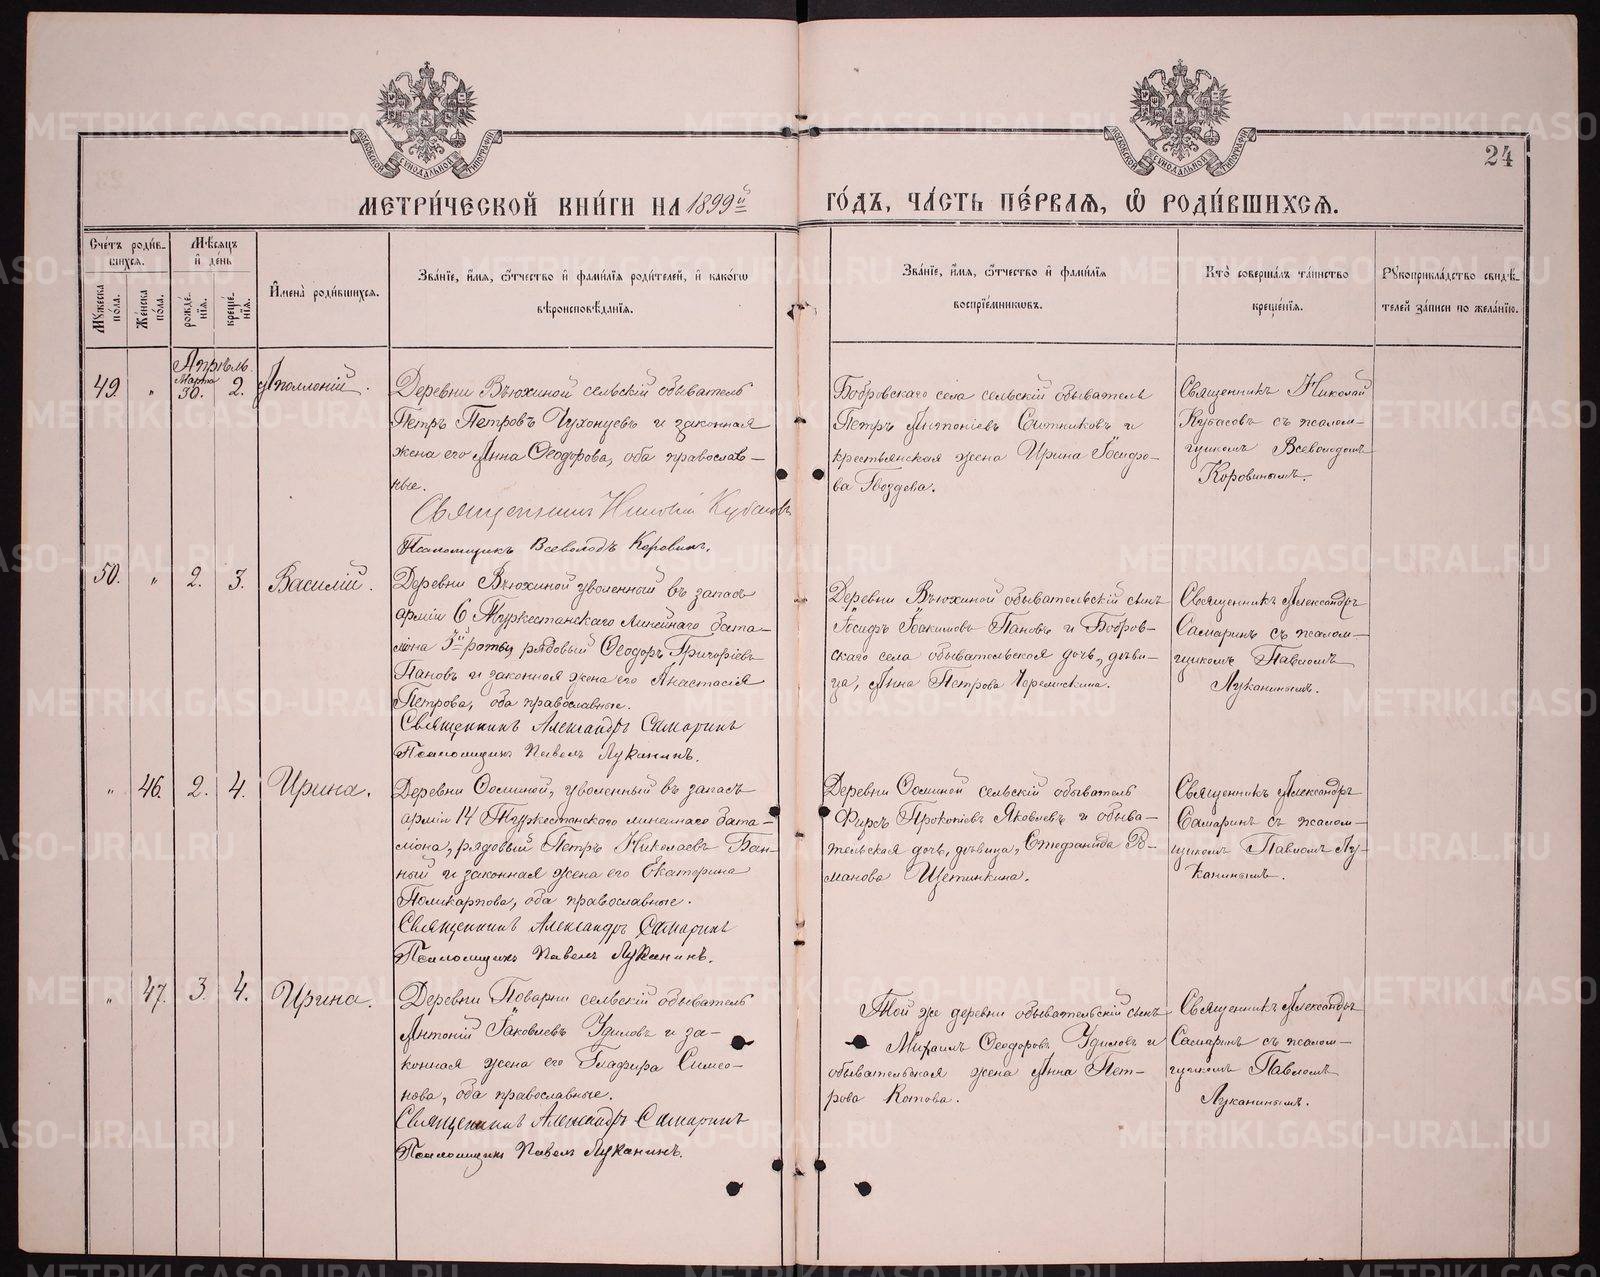 24
МЕТРИЧЕСКОЙ КНИГИ НА 1899й ГОДЪ, ЧАСТЬ ПЕРВАЯ, Ѡ РОДИВШИХСЯ.
Счетъ родившихся.
Мужеска пола.
Женска пола.
Мѣсяцъ и день
рожденія.
крещенія.
Имена родившихся.
Званіе, имя, отчество и фамилія родителей, и какогѡ вѣроисповѣданія.
Званіе, имя, отчество и фамилія воспріемниковъ.
Кто совершалъ таинство крещенія.
Рукоприкладство свидѣтелей записи по желанію.
Апрѣль.
49. " Марта 30. 2. Аполлоній.
Деревни Вьюхиной сельскій обыватель
Петръ Петровъ Чухонцевъ и законная
жена его Анна Ѳеодорова, оба православ-
ные.
Священникъ Николай Кубасовъ
Псаломщикъ Всеволодъ Коровинъ.
Бобровскаго села сельскій обыватель
Петръ Антоніевъ Ситниковъ и
крестьянская жена Ирина Іосифо-
ва Гвоздева.
Священникъ Николай
Кубасовъ съ псалом-
щикомъ Всеволодомъ
Коровинымъ.
50. " 2. 3. Василій.
Деревни Вьюхиной уволенный въ запасъ
арміи 6 Туркестанскаго линейнаго бата-
ліона 3й роты, рядовый Ѳеодоръ Григоріевъ
Пановъ и законная жена его Анастасія
Петрова, оба православные.
Священникъ Александръ Самаринъ
Псаломщикъ Павелъ Луканинъ.
Деревни Вьюхиной обывательскій сынъ
Іосифъ Іоакимовъ Пановъ и Бобров-
скаго села обывательская дочь, дѣви-
ца, Анна Петрова Черемискина.
Священникъ Александръ
Самаринъ съ псалом-
щикомъ Павломъ
Луканинымъ.
" 46. 2. 4. Ирина.
Деревни Осминой, уволенный въ запасъ
арміи 14 Туркестанскаго линейнаго бата-
ліона, рядовый Петръ Николаевъ Бан-
ный и законная жена его Екатерина
Поликарпова, оба православные.
Священникъ Александръ Самаринъ
Псаломщикъ Павелъ Луканинъ.
Деревни Осминой сельскій обыватель
Фирсъ Прокопіевъ Яковлевъ и обыва-
тельская дочь, дѣвица, Стефанида Ро-
манова Щетинкина.
Священникъ Александръ
Самаринъ съ псалом-
щикомъ Павломъ Лу-
канинымъ.
" 47. 3. 4. Ирина.
Деревни Поварни сельскій обыватель
Антоній Іаковлевъ Удиловъ и за-
конная жена его Глафира Симео-
нова, оба православные.
Священникъ Александръ Самаринъ
Псаломщикъ Павелъ Луканинъ.
Той же деревни обывательскій сынъ
Михаилъ Ѳеодоровъ Удиловъ и
обывательская жена Анна Пет-
рова Котова.
Священникъ Александръ
Самаринъ съ псалом-
щикомъ Павломъ
Луканинымъ.
METRIKI.GASO-URAL.RU